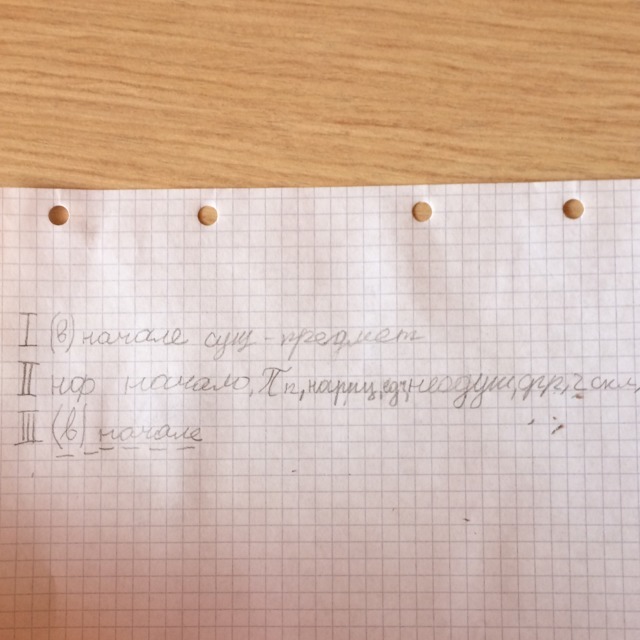 I (в) начале сущ - предмет
II нф начало, Пп, нариц, ед.ч, неодуш, ср.р, 2 скл,
III (в) начале